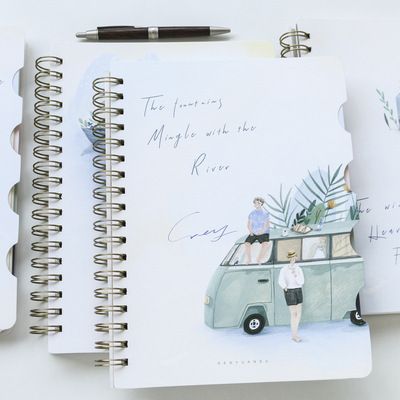 The fountains
Mingle with the
River
The win
Heav
F